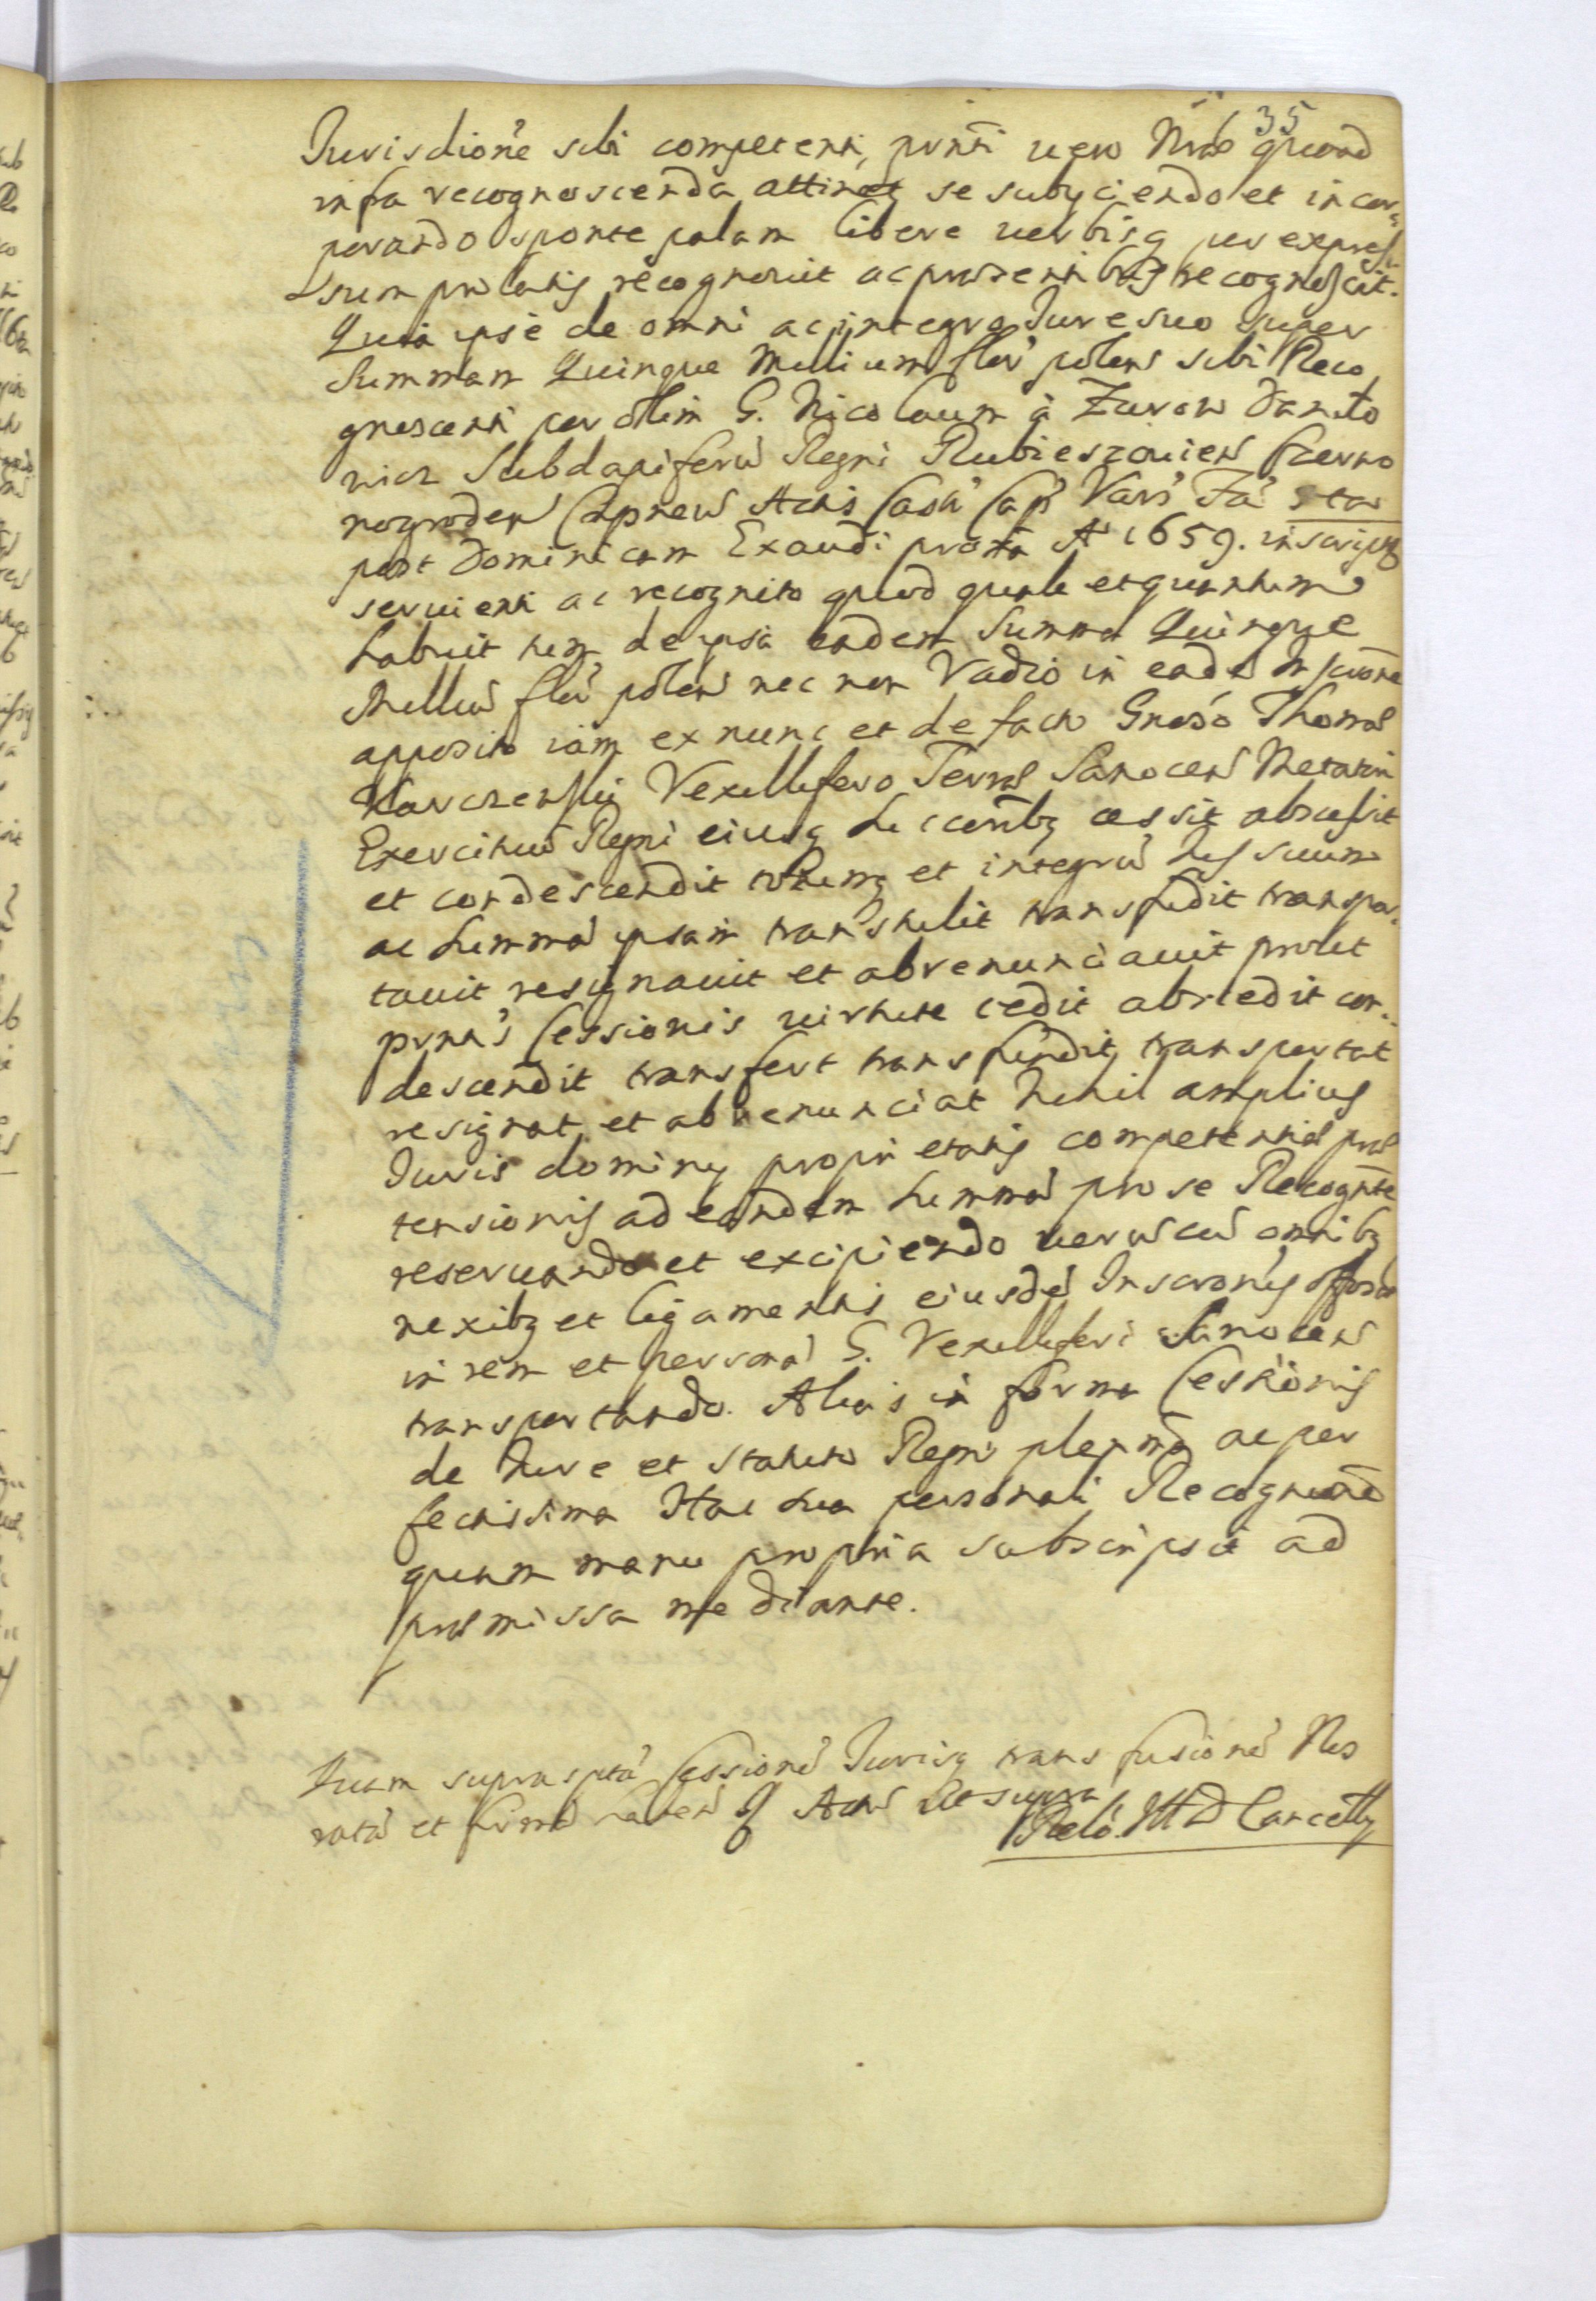 35
Jurisdione sibi competenti, pnti vero quoad
infra recognoscenda attinet se subyciendo et incor,,
porando sponte palam libere verbisq per expres,,
sum prolatis recognovit ac praesentibus recognoscit.
Quia ipse de omni ac integro Jure suo super
Summam Quinque Millium flor polon sibi Reco
gnoscenti per olim G. Nicolaum à Zurow Danilo
wicz Subdapiferu Regni Rubieszouien Czerno
nogroden Capneu Actis Casti Cap Vars Fa
post Dominicam Exaudi proxia A 1659. inscript
servienti ac recognito quod quale et quantum
habuit tum de ipsa eadem Summa Quinque
Milliu flor polon nec non Vadio in eade Inscrone
apposito iam ex nunc et de facto Gnoso Thomae
Karczewski Vexillifero Terrae Sanocen Metatori
Exercituu Regni eiusq succeribq cessit abscessit
et condescendit totumq et integru Jus suum
ac Summa ipsam transtulit transfudit transpor,,
tavit resignavit et abrenunciavit prout
pnti Cessionis virtute cedit abscedit con,,
descendit transfert transfundit transportat
resignat et abrenunciat Nihil amplius
Juris dominy proprietatis competentiae prae
tensionis ad eandem Summa pro se Recognte
reservando et excipiendo verum cu omnibq
nexibq et ligamentis eiusde Inscronis
in rem et persona G. Vexilliferi Sanocen
transportando. Aliàs in forma Cessionis
de Jure et Statuto Regni plenma ac per
fectissima Hac sua personali Recognitione
quam manu propria subscripsit ad
praemissa mediante.
Quam suprascpta Cessione Jurisq transfusione
rata et firma Actu ut supra